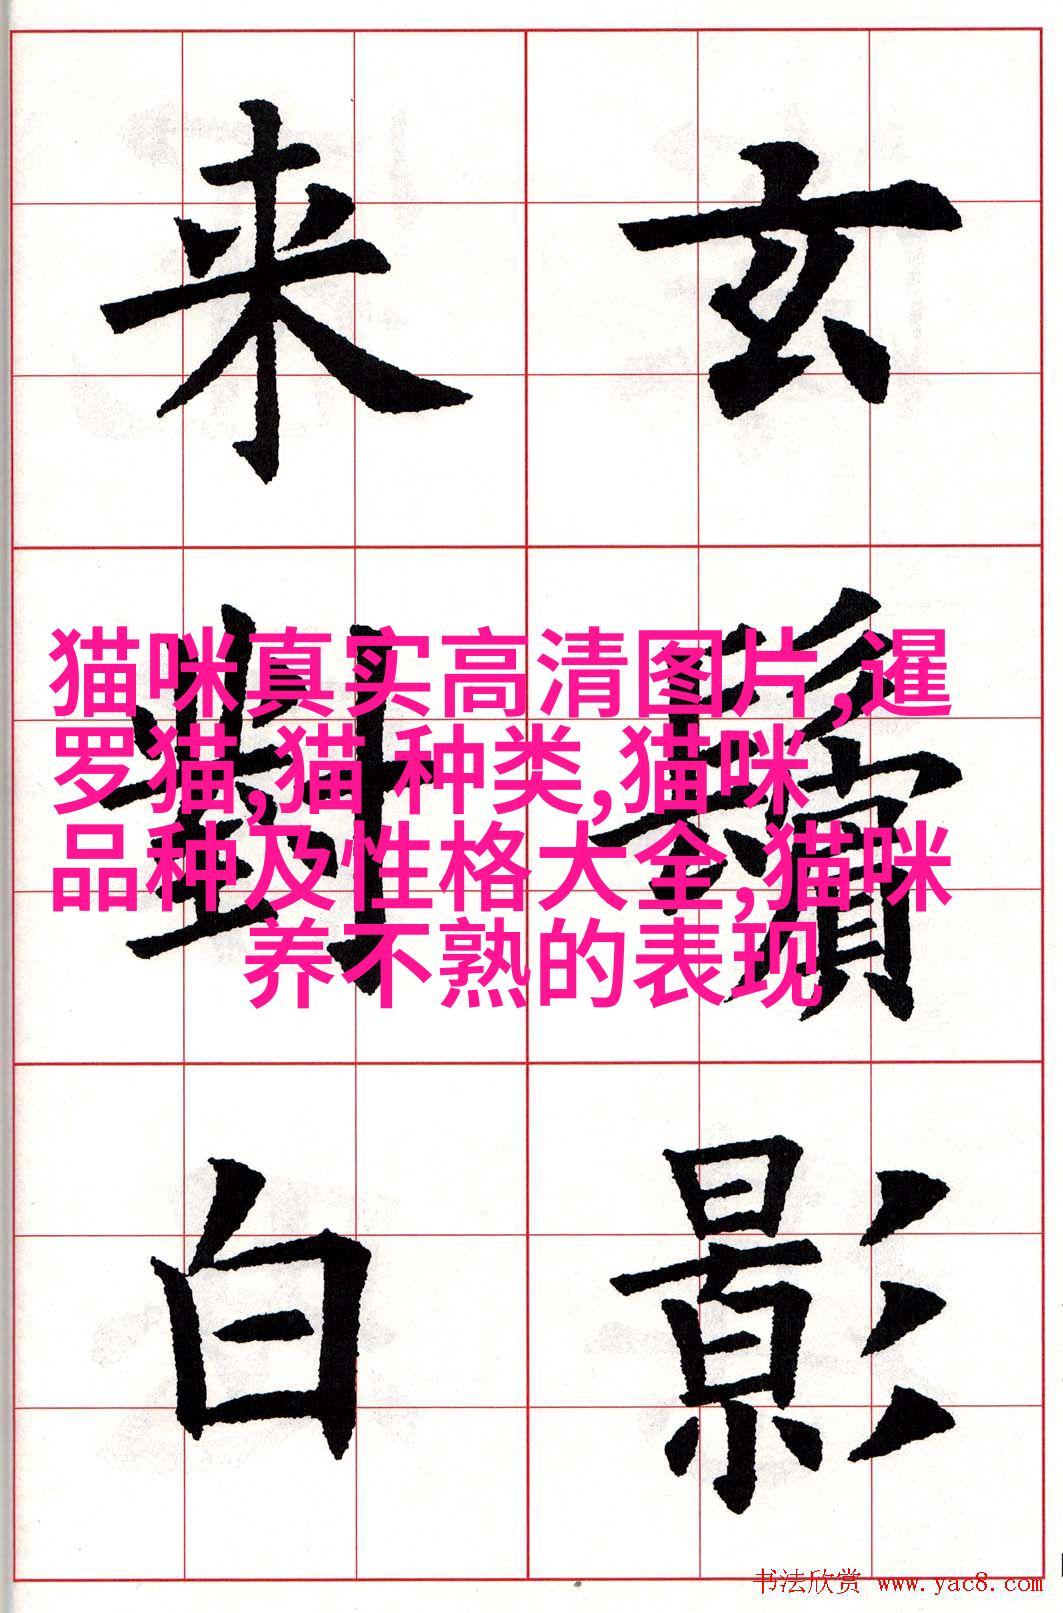 玄鬢影
来對白
猫咪真实高清图片,暹
罗猫,猫 种类,猫咪
品种及性格大全,猫咪
养不熟的表现
书法欣赏 www.yac8.com